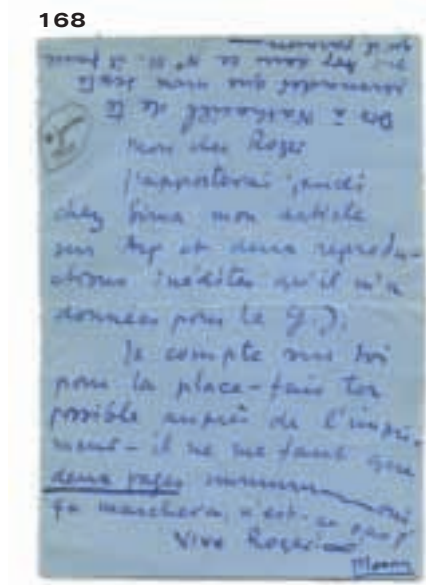 168
mon cher Roger
j'apporterai jeudi
chez Bima mon article
sur Arp et deux reprodu-
ctions inédites qu'il m'a
données pour le G.J.
Je compte sur toi
pour la place - fais ton
possible auprès de l'impri-
meur - il ne me faut que
deux pages minimum oui
ça marchera, n'est-ce pas?
Vive Roger
Dis à Nathaniel de te
que mon texte
sur Arp dans le N°